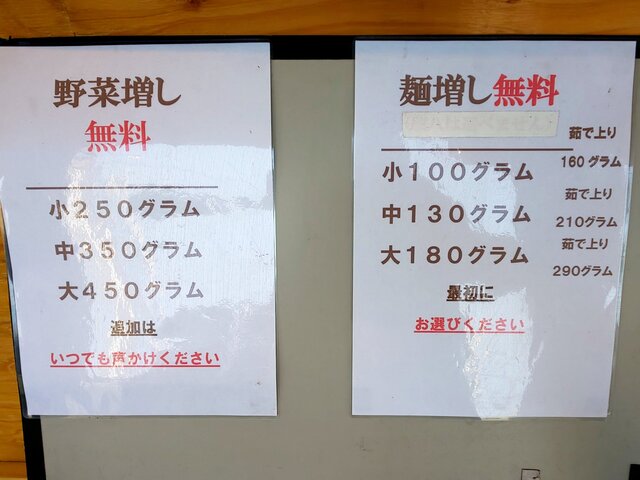 野菜増し
無料
小250グラム
中350グラム
大450グラム
追加は
いつでも声かけください
麺増し無料
茹で上り
小100グラム 160グラム
茹で上り
中130グラム 210グラム
茹で上り
大180グラム 290グラム
最初に
お選びください